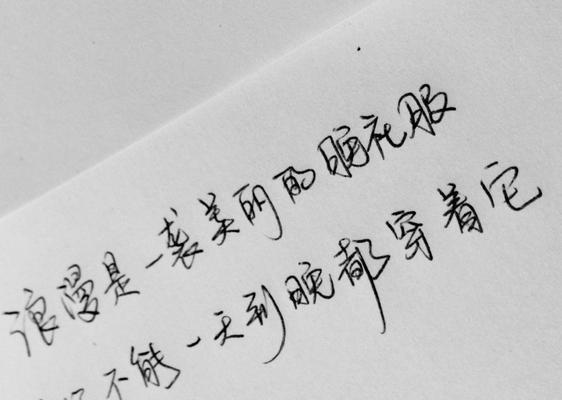 浪漫是一袭美丽的晚礼服
不能一天到晚都穿着它